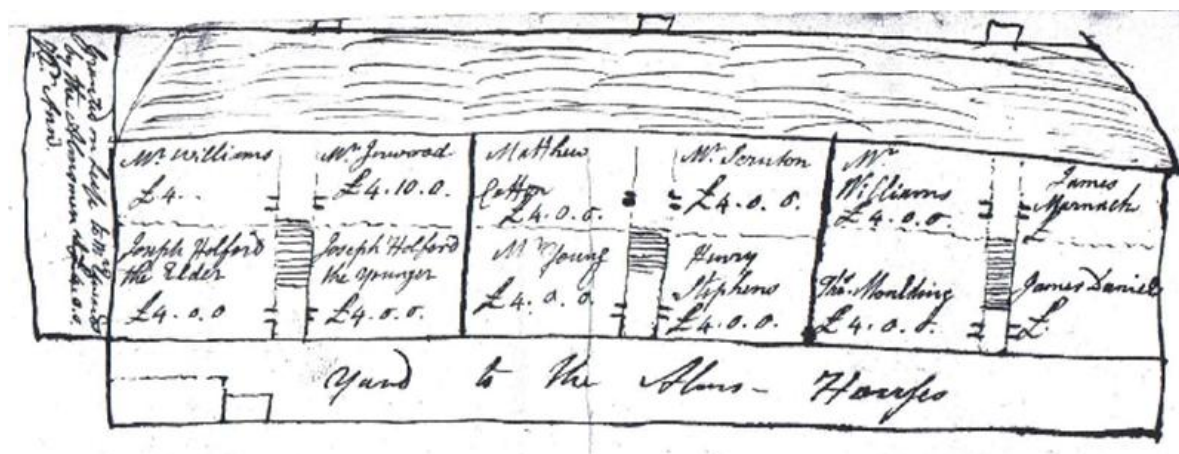 Granted on lease to Mr Gunnd
by the Almsmen at £4.0.0.
Pr. Annd.
Mr Williams
£4..
Mr Inwood
£4.10.0.
Matthew
Cotton
£4.0.0.
Mr Scruton
£4.0.0.
Mr
Williams
£4.0.0.
James
Marnach
£
Joseph Holford
the Elder
£4.0.0
Joseph Holford
the Younger
£4.0.0.
Mr Young
£4.0.0
Henry
Stephens
£4.0.0.
Thos. Moulding
£4.0.0.
James Daniel
£.
Yard to the Alms-Houses